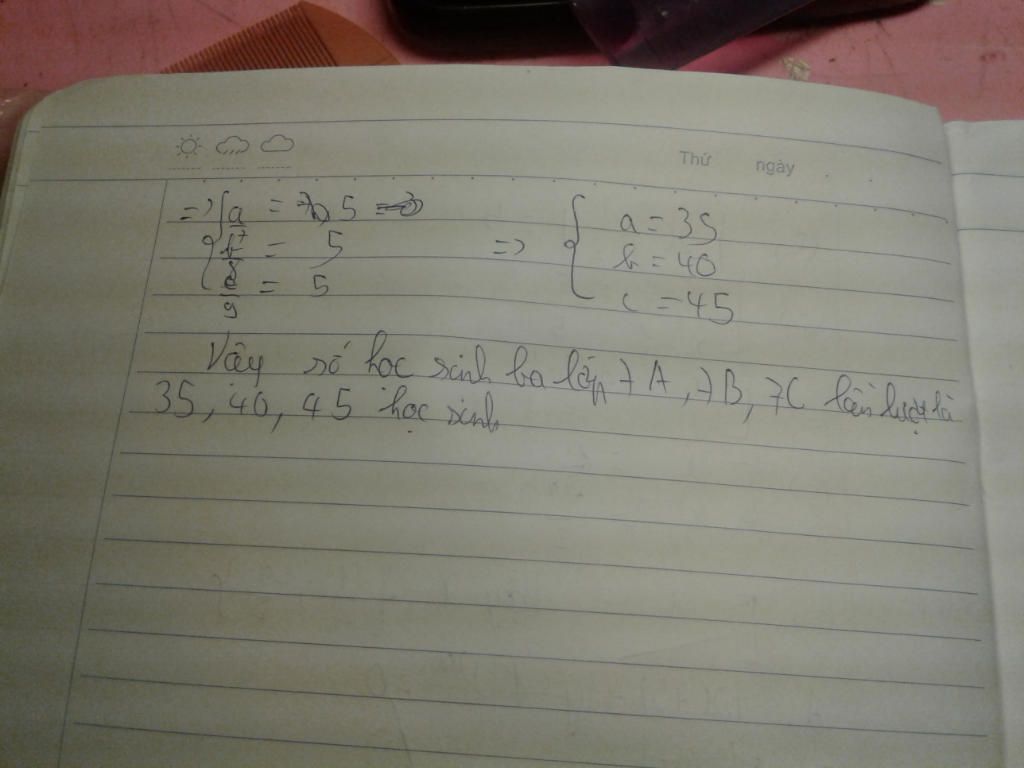 Thứ ngày
=> { a/7 = 5 => { a = 35
b/8 = 5 b = 40
c/9 = 5 c = 45
Vậy số học sinh ba lớp 7A, 7B, 7C lần lượt là
35, 40, 45 học sinh